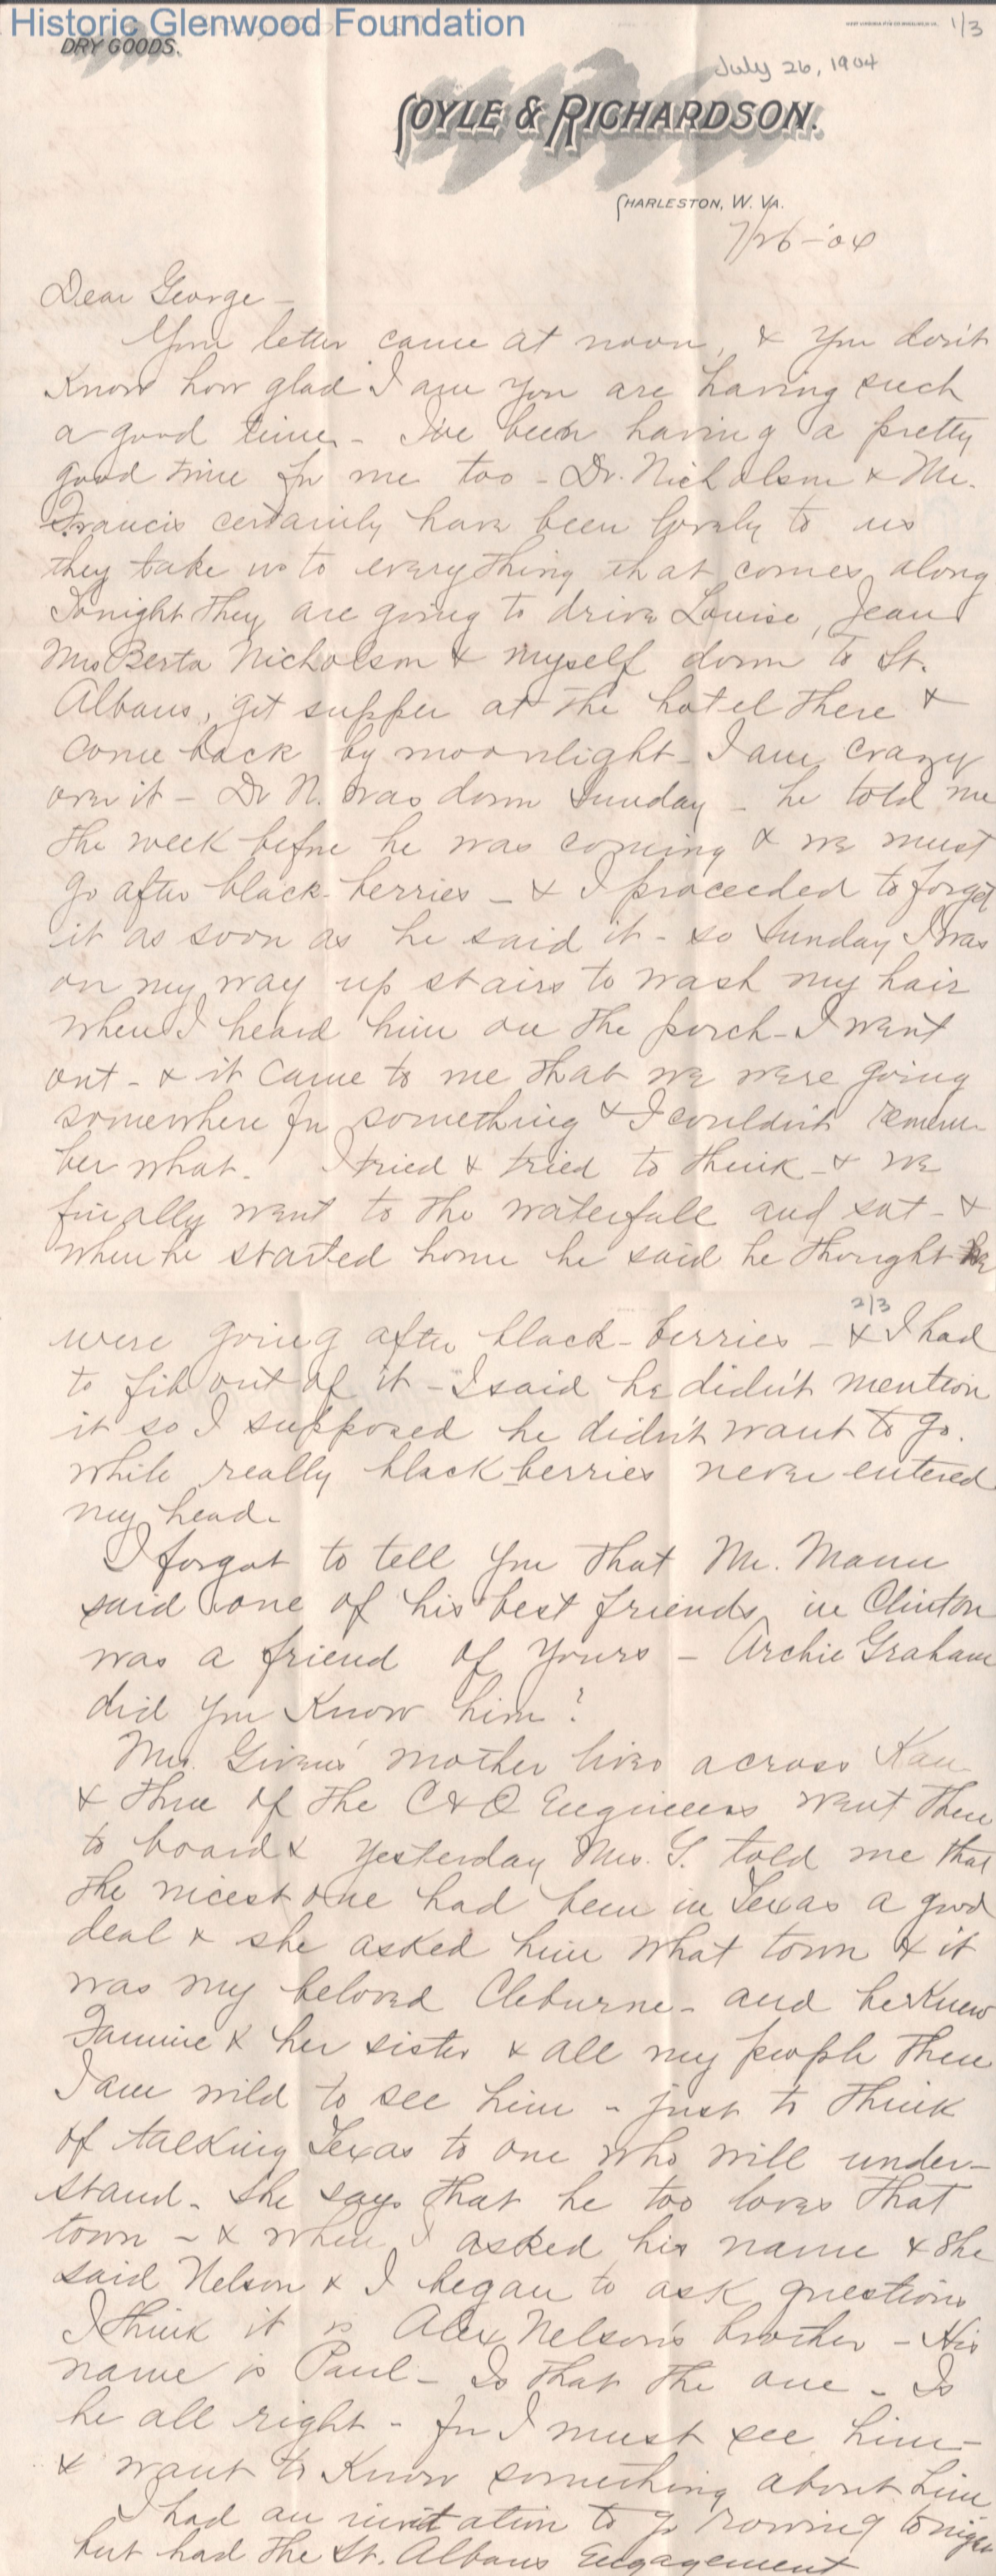 Historic Glenwood Foundation
1/3
DRY GOODS.
July 26, 1904
COYLE & RICHARDSON.
CHARLESTON, W. VA.
7/26-'04
Dear George -
Your letter came at noon, & you don't
know how glad I am you are having such
a good time - I've been having a pretty
good time for me too - Dr. Nicholson & Mr.
Francis certainly have been lovely to us
they take us to everything that comes along
Tonight they are going to drive Louise, Jean
Mrs Berta Nicholson & myself down to St.
Albans, get supper at the hotel there &
come back by moonlight - I am crazy
over it - Dr N. was down Sunday - he told me
the week before he was coming & we must
go after black-berries - & I proceeded to forget
it as soon as he said it - so Sunday I was
on my way up stairs to wash my hair
when I heard him on the porch - I went
out - & it came to me that we were going
somewhere for something & I couldn't remem-
ber what. I tried & tried to think - & we
finally went to the waterfall and sat - &
when he started home he said he thought we
2/3
were going after black-berries - & I had
to fib out of it - I said he didn't mention
it so I supposed he didn't want to go.
while really blackberries never entered
my head.
I forgot to tell you that Mr. Mann
said one of his best friends in Clinton
was a friend of yours - Archie Graham
did you know him?
Mrs. Givens' mother lives across Kan
& three of the C & O Engineers went there
to board & yesterday Mrs. G. told me that
the nicest one had been in Texas a good
deal & she asked him what town & it
was my beloved Cleburne - and he knew
Fannie & her sister & all my people there
I am wild to see him - just to think
of talking Texas to one who will under-
stand - She says that he too loves that
town - & when I asked his name & she
said Nelson & I began to ask questions
I think it is Alex Nelson's brother - His
name is Paul - Is that the one - Is
he all right - for I must see him -
& want to know something about him
I had an invitation to go rowing tonight
but had the St. Albans Engagement